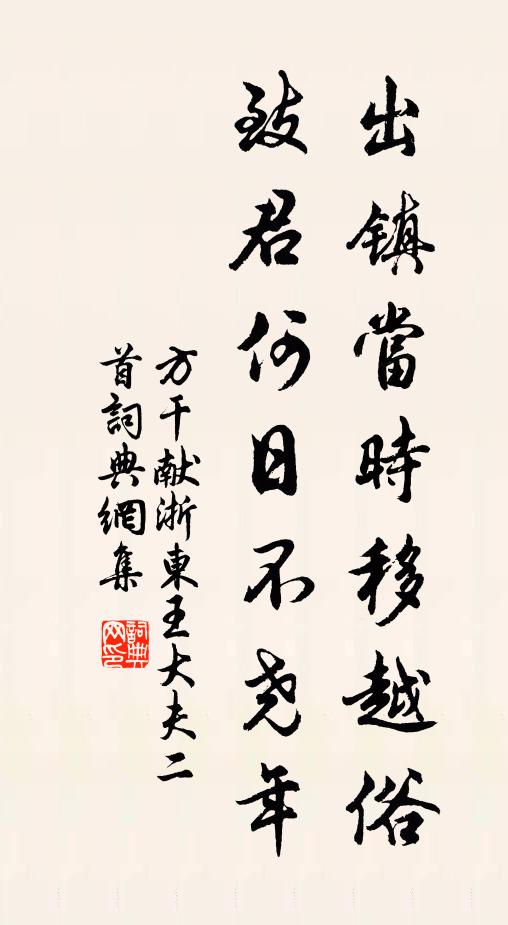 出镇當時移越俗
致君何日不尧年
方干献浙東王大夫二
首詞典網集
詞典
网印